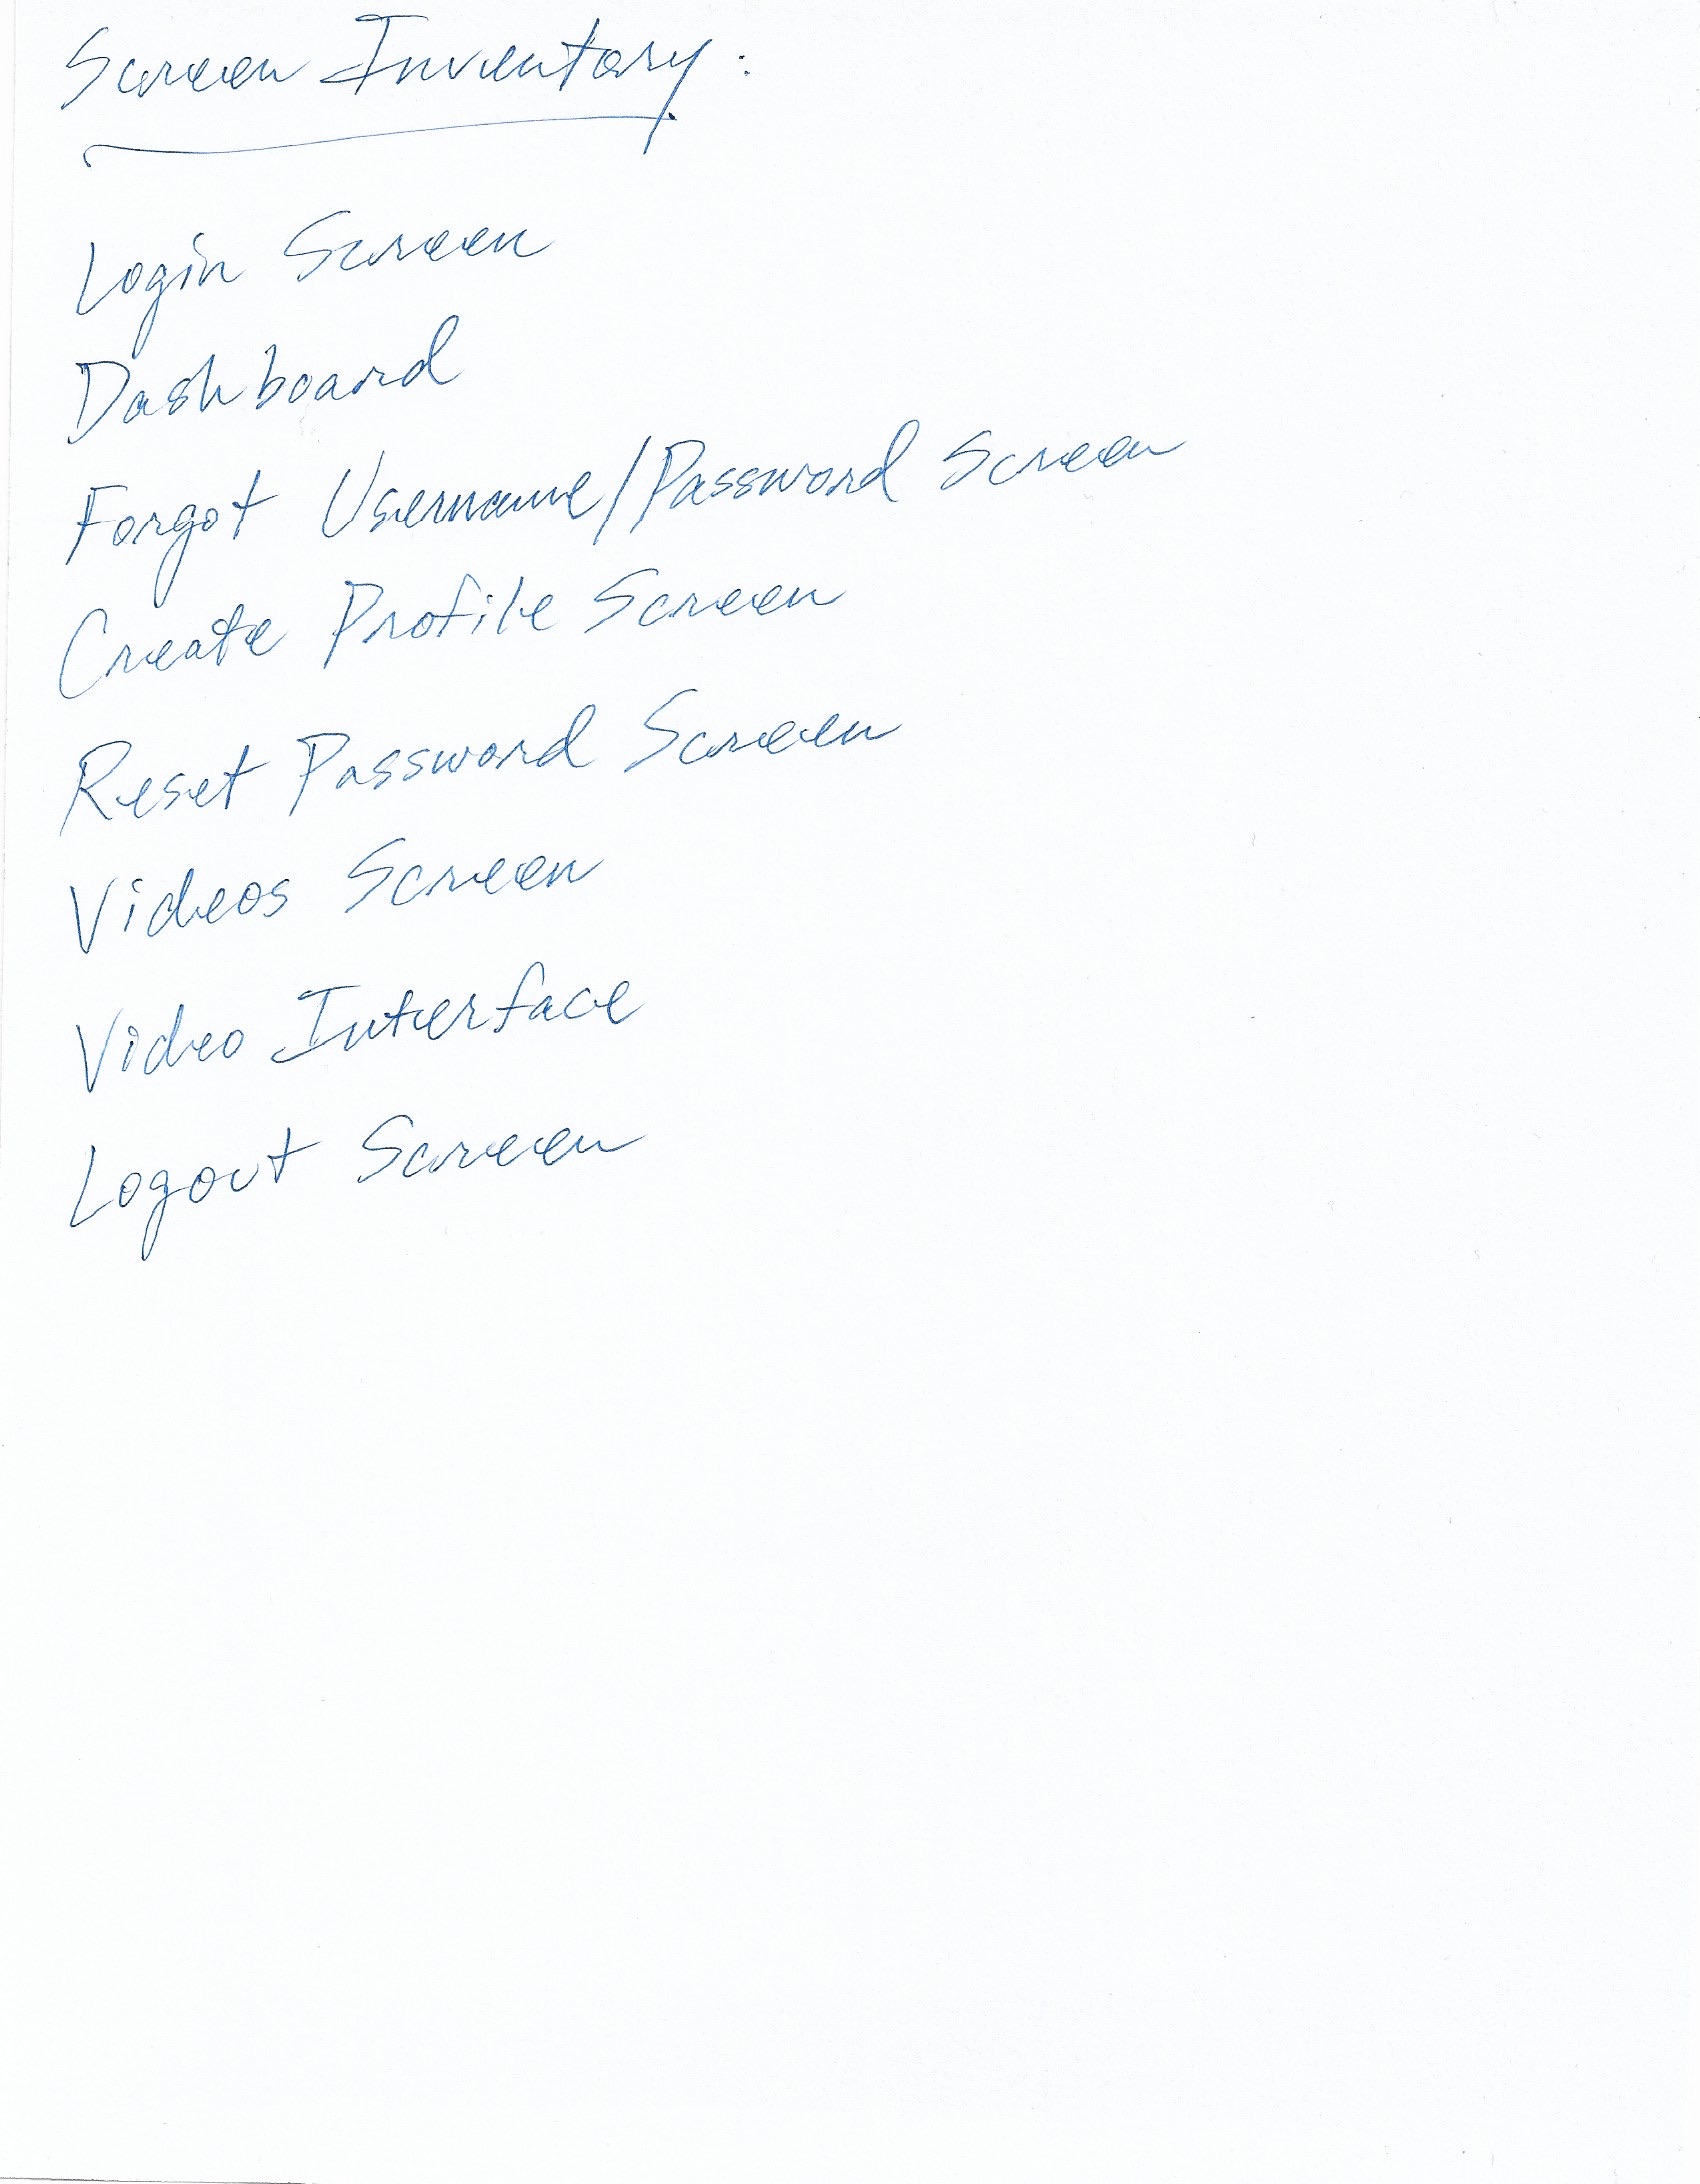 Screen Inventory:
Login Screen
Dashboard
Forgot Username/Password Screen
Create Profile Screen
Reset Password Screen
Videos Screen
Video Interface
Logout Screen